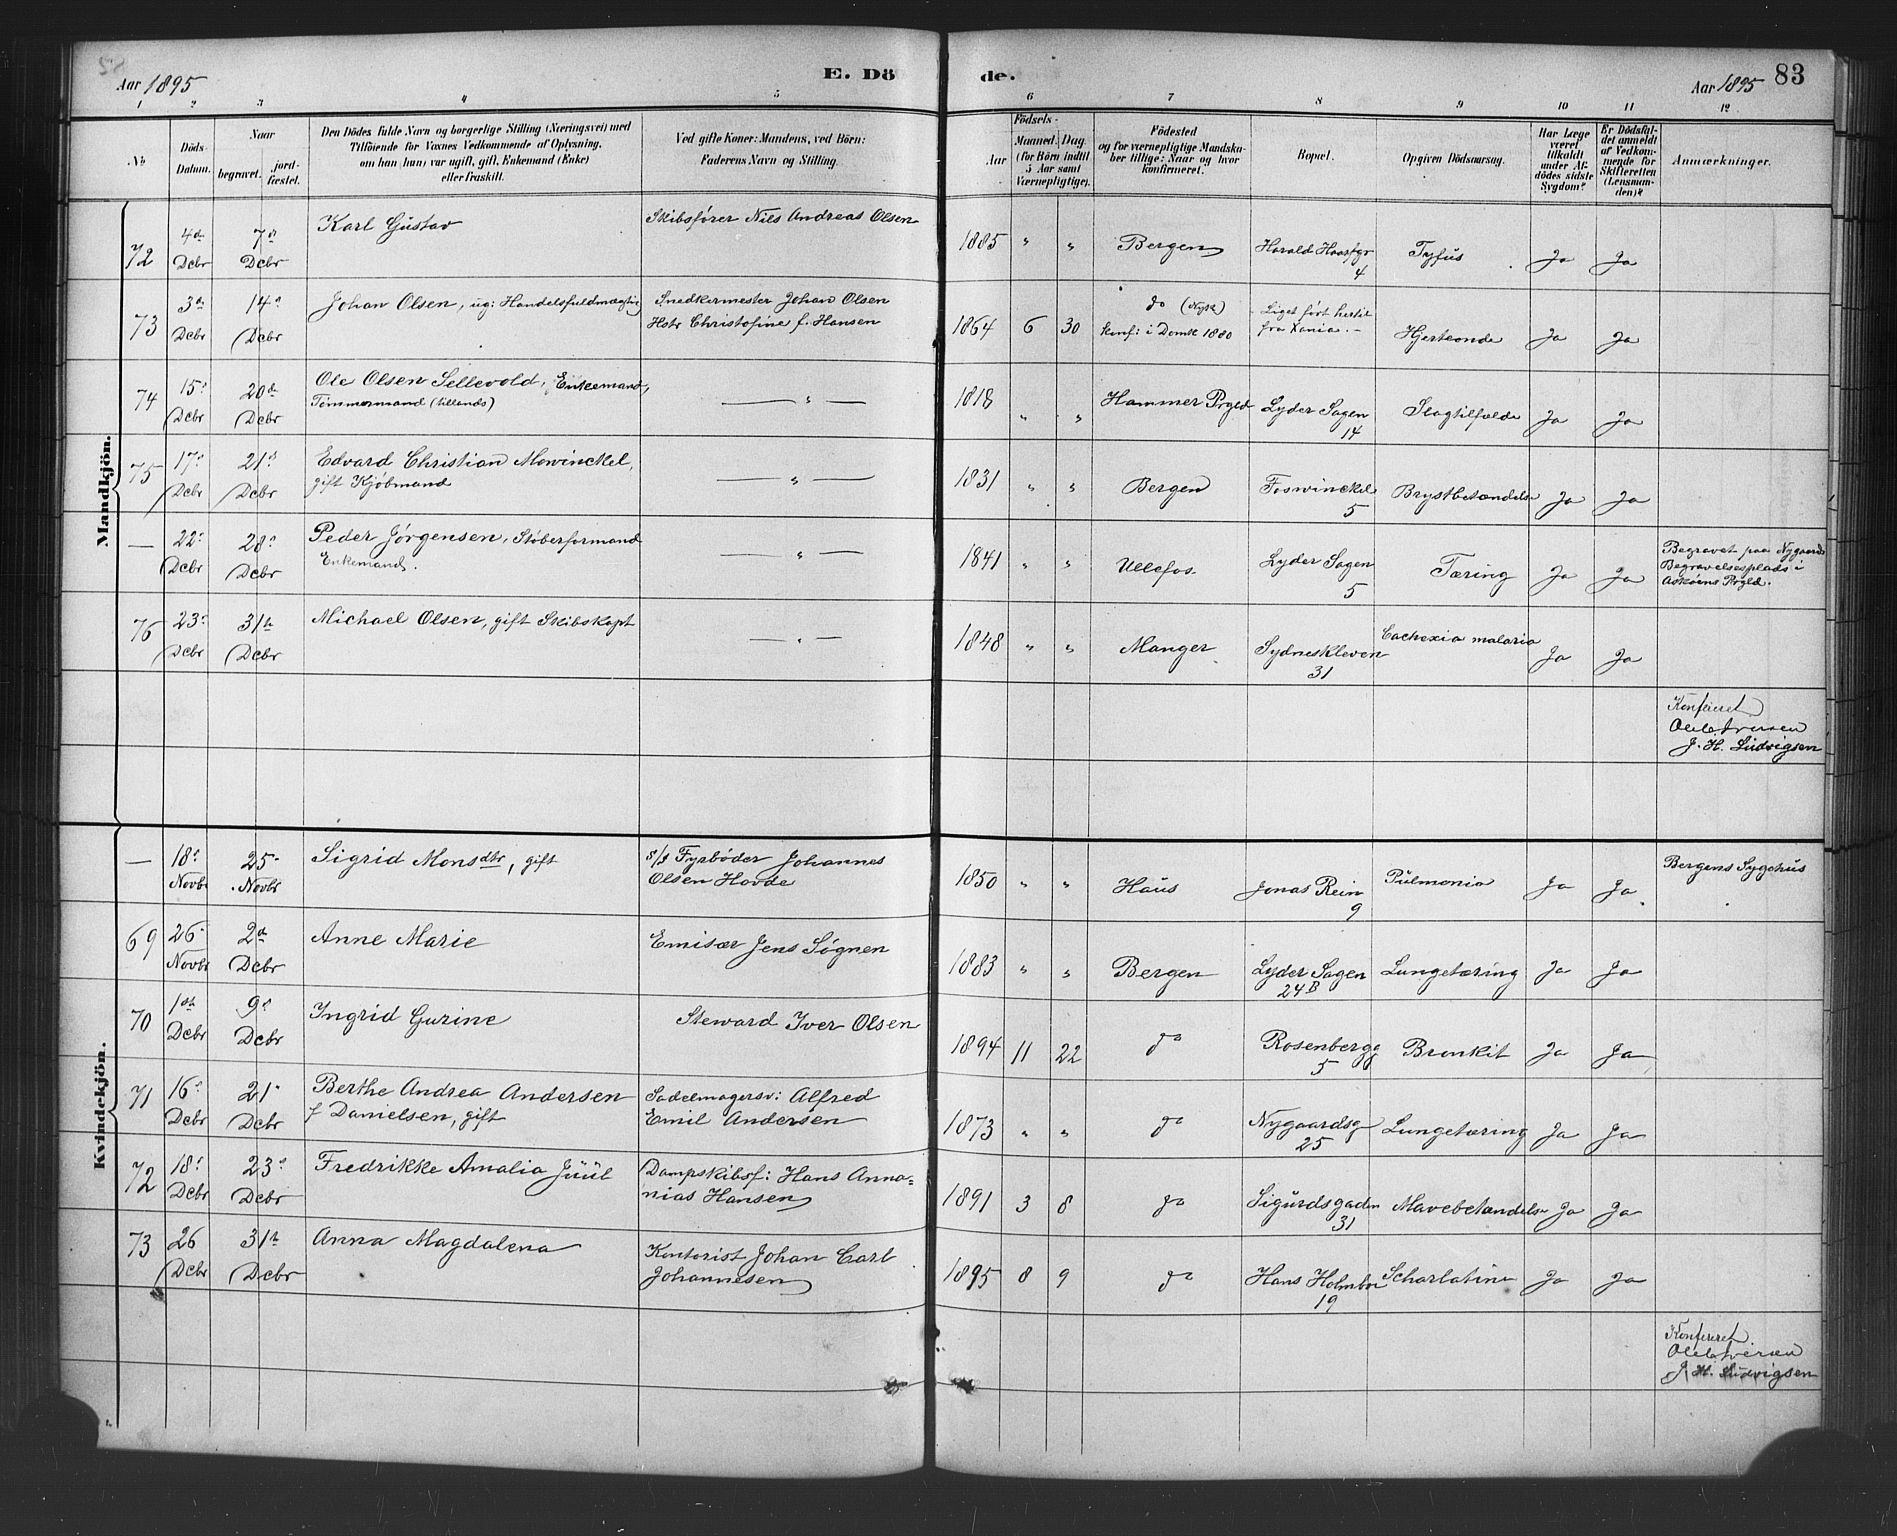 Aar 1895
E. Dö
de.
Aar 1895
83
1 2 3 4 5 6 7 8 9 10 11 12
No
Döds-Datum.
Naar
begravet.
jord-fæstet.
Den Dödes fulde Navn og borgerlige Stilling (Næringsvei) med
Tilföiende for Voxnes Vedkommende af Oplysning,
om han (hun) var ugift, gift, Enkemand (Enke)
eller fraskilt.
Ved gifte Koner: Mandens, ved Börn:
Faderens Navn og Stilling.
Födsels-
Aar
Maaned. Dag.
(for Börn indtil
5 Aar samt
Værnepligtige).
Födested
og for værnepligtige Mandska-
ber tillige: Naar og hvor
konfirmeret.
Bopæl.
Opgiven Dödsaarsag.
Har Læge
været
tilkaldt
under Af-
dödes sidste
Sygdom?
Er Dödsfal-
det anmeldt
af Vedkom-
mende for
Skifteretten
(Lensman-
den)?
Anmærkninger.
Mandkjön.
72 4de Dcbr 7de Dcbr Karl Gustav Skibsfører Nils Andreas Olsen 1885 " " Bergen Harald Haarfgr 4 Tyfus Ja Ja
73 3de Dcbr 14de Dcbr Johan Olsen, ug: Handelsfuldmægtig Snedkermester Johan Olsen
Hstr Christofine f. Hansen 1864 6 30 do (Nysk)
konf: i Domk 1880 Liget ført hertil
fra Xania. - Hjerteonde Ja Ja
74 15de Dcbr 20de Dcbr Ole Olsen Sellevold, Enkemand,
Tømmermand (tillands) — " — 1818 " " Hammer Prgld Lyder Sagen 14 Slagtilfælde Ja Ja
75 17de Dcbr 21de Dcbr Edvard Christian Mowinckel,
gift Kjøbmand — " — 1831 " " Bergen Foswinckels 5 Brystbetændelse Ja Ja
— 22de Dcbr 28de Dcbr Peder Jørgensen, Støberformand
Enkemand. — " — 1841 " " Ullefos. Lyder Sagen 5 Tæring Ja Ja Begravet paa Nygaards
Begravelsesplads i
Askøens Prgld.
76 23de Dcbr 31te Dcbr Michael Olsen, gift Skibskapt — " — 1848 " " Manger Sydneskleven 31 Cachexia malaria Ja Ja
Konfereret
J. H. Ludvigsen
Kvindekjön.
— 18de Novbr 25 Novbr Sigrid Monsdtr, gift s/g Fyrbøder Johannes
Olsen Hovde 1850 " " Haus Jonas Rein 9 Pulmonia Ja Ja Bergens Sygehus
69 26 Novbr 2de Dcbr Anne Marie Emisær Jens Søgnen 1883 " " Bergen Lyder Sagen 24B Lungetæring Ja Ja
70 1ste Dcbr 9de Dcbr Ingrid Gurine Steward Iver Olsen 1894 11 22 do Rosenbergg 5 Bronkit Ja Ja
71 16de Dcbr 21 Dcbr Berthe Andrea Andersen
f Danielsen, gift Sadelmagersv: Alfred
Emil Andersen 1873 " " do Nygaardsg 25 Lungetæring Ja Ja
72 18de Dcbr 23de Dcbr Fredrikke Amalia Juul Dampskibsf: Hans Anna=
nias Hansen 1891 3 8 do Sigurdsgaden 31 Mavebetændelse Ja Ja
73 26 Dcbr 31te Dcbr Anna Magdalena Kontorist Johan Carl
Johannesen 1895 8 9 do Hans Holmboe 19 Scharlatina Ja Ja
Konfereret
J. H. Ludvigsen